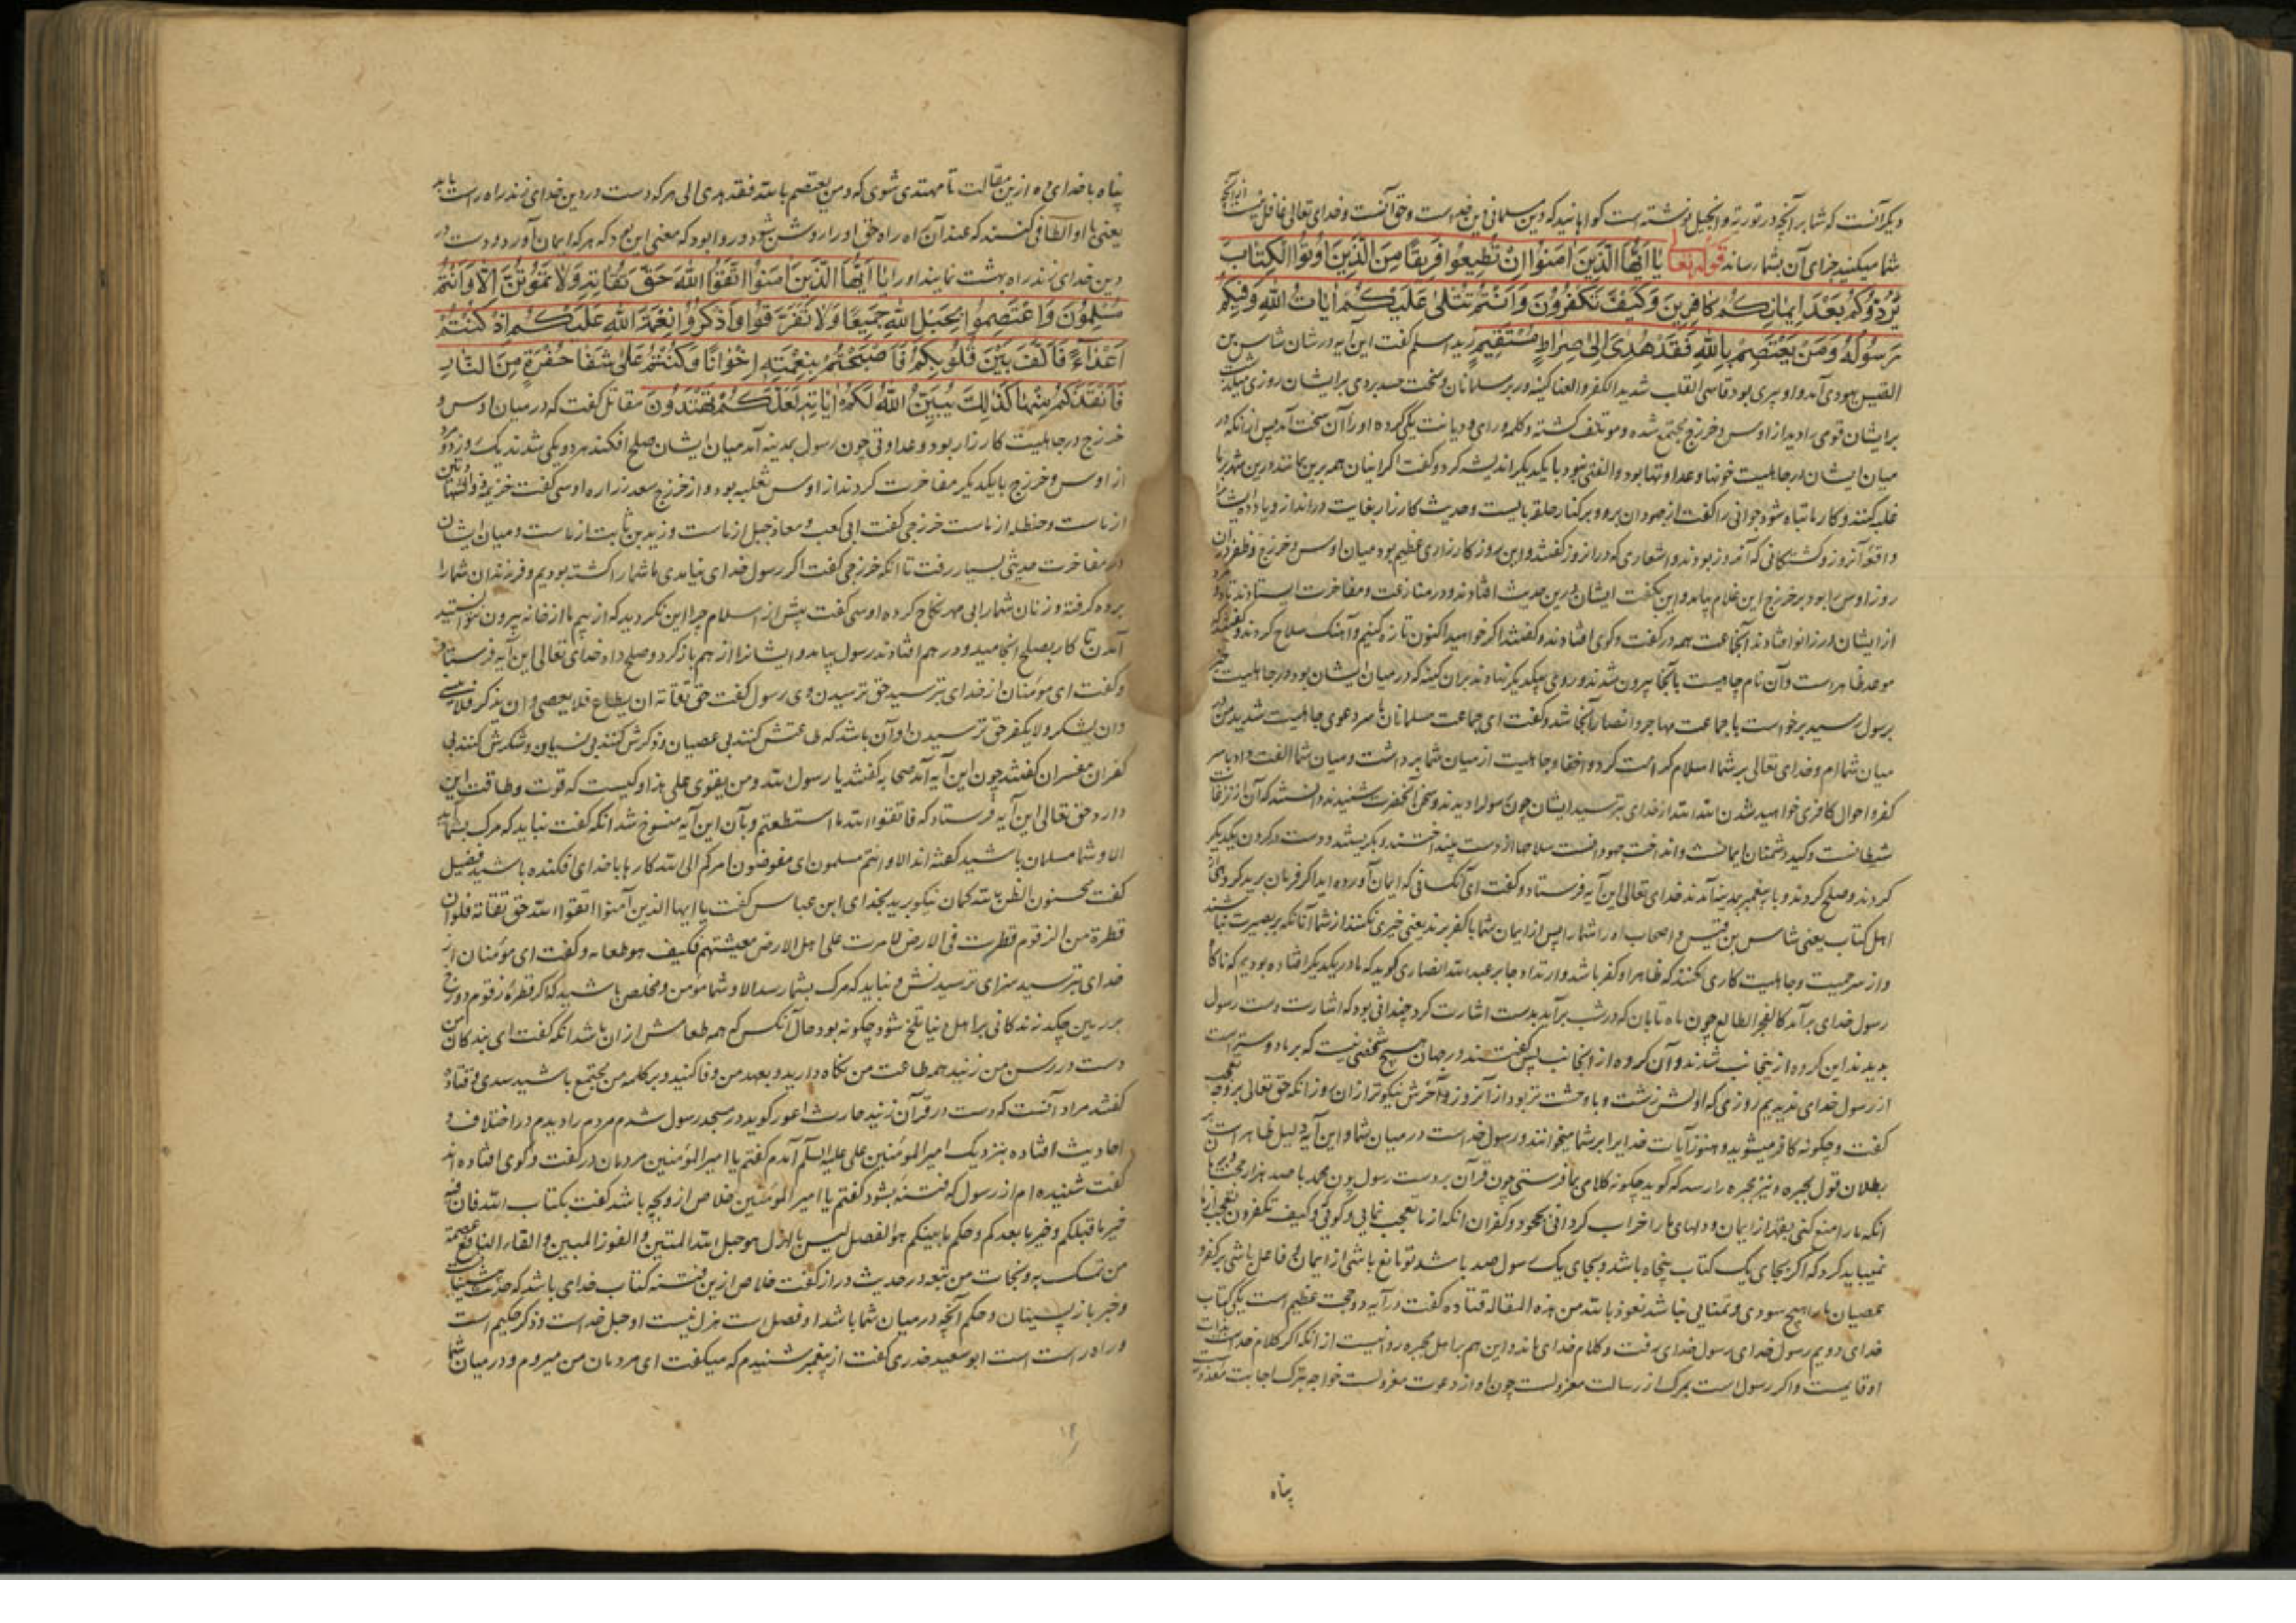 دیگر آنست که شما بر آنچه در توریة و انجیل نوشته است گواهانید که دین مسلمانی دین خداست و حق آنست و خدای تعالی غافل نیست از آنچه
شما میکنید جزای آن بشما رساند قوله تعالی یَا اَیُّهَا الَّذِینَ اٰمَنُوا اِنْ تُطِیعُوا فَرِیقًا مِنَ الَّذِینَ اُوتُوا الْکِتَابَ
یَرُدُّوکُمْ بَعْدَ اِیمَانِکُمْ کَافِرِینَ وَکَیْفَ تَکْفُرُونَ وَاَنْتُمْ تُتْلٰی عَلَیْکُمْ اٰیَاتُ اللّٰهِ وَفِیکُمْ
رَسُولُهُ وَمَنْ یَعْتَصِمْ بِاللّٰهِ فَقَدْ هُدِیَ اِلٰی صِرَاطٍ مُسْتَقِیمٍ زید اسلم گفت این آیه در شان شاس بن
القیس یهودی آمد و او پیری بود قاسی القلب شدید الکفر و العنا کینه ور بر مسلمانان و سخت حسد بردی بر ایشان روزی
بر ایشان قومی را دید از اوس و خزرج مجتمع شده و مؤتلف گشته و کلمه و رای و دیانت یکی کرده او را آن سخت آمد پس از آنکه در
میان ایشان در جاهلیت خونها و عداوتها بود و الفتی نبود با یکدیگر اندیشه کرد و گفت اگر اینان همه برین بمانند درین شهر بر ما
غلبه کنند و کار ما تباه شود جوانی را گفت از جهودان برو و بر کنار حلقه بایست و حدیث کارزار بغایت در انداز و یاد ده ایشان را
واقعه آنروز و کشتگانی که آنروز بودند و اشعاری که در آنروز گفتند و این روز کارزاری عظیم بود میان اوس و خزرج و ظفر در آن
روز اوس را بود بر خزرج این غلام بیامد و این بگفت ایشان درین حدیث افتادند و در منازعت و مفاخرت ایستادند تا دو مرد
از ایشان در زانو افتادند آنجماعت همه در گفت و گوی افتادند و گفتند اگر خواهید اکنون تازه کنیم و آهنگ سلاح کردند و گفتند که
موعد ظاهر است و آن نام جاهیست با آنجا بیرون شدند و روی بیکدیگر نهادند بر آن کینه که در میان ایشان بود در جاهلیت خبر
برسول رسید برخواست با جماعت مهاجر و انصار آنجا شد و گفت ای جماعت مسلمانان با سر دعوی جاهلیت شدید و من در
میان شماام و خدای تعالی بر شما اسلام کرامت کرد و اخفا و جاهلیت از میان شما برداشت و میان شما الفت داد با سر
کفر و احوال کافری خواهید شدن الله الله از خدای بترسید ایشان چون رسول را دیدند و سخن آنحضرت شنیدند دانستند که آن از نزغات
شیطانست و کید دشمنان ایمانست و انداخت جهودانست سلاحها از دست بینداختند و بگریستند و دست در گردن یکدیگر
کردند و صلح کردند و با پیغمبر بمدینه آمدند خدای تعالی این آیه فرستاد و گفت ای آنکسانی که ایمان آورده اید اگر فرمان برید گروهی را از
اهل کتاب یعنی شاس بن قیس و اصحاب او را شما را پس از ایمان شما با کفر برند یعنی خیری نکنند از شما آنانکه بر بصیرت نباشند
و از سر حمیت و جاهلیت کاری کنند که ظاهر او کفر باشد و ارتداد جابر عبد الله انصاری گوید که ما در یکدیگر افتاده بودیم که ناگاه
رسول خدای برآمد کالفجر الطالع چون ماه تابان که در شب برآید بدست اشارت کرد چندانی بود که اشارت دست رسول
بدیدند این گروه ازینجانب شدند و آن گروه از آنجانب پس گفتند در جهان هیچ شخصی نیست که بر ما دوستر است
از رسول خدای ندیدیم روزی که اولش زشت و با وحشت تر بود از آنروز و آخرش نیکوتر از آن روز آنکه حق تعالی بر وجه تعجب
گفت و چگونه کافر میشوید و هنوز آیات خدایرا بر شما میخوانند و رسول خداست در میان شما و این آیه دلیل ظاهر است بر
بطلان قول مجبره و نیز مجبره را رسد که گوید چگونه کلامی بما فرستی چون قرآن بر دست رسول چون محمد با صد هزار حجتها
آنکه ما را منع کنی بقهر از ایمان و دلهای ما را خراب گردانی بجحود و کفران آنکه از ما تعجب نمایی و گوئی و کیف تکفرون تعجب از ما
نمیباید کرد که اگر بجای یک کتاب پنجاه باشد و بجای یک رسول صد باشد تو مانع باشی از ایمان فاعل باشی بر کفر و
عصیان ما را هیچ سودی و غنایی نباشد نعوذ بالله من هذه المقاله قتاده گفت در آیه دو حجت عظیم است یکی کتاب
خدای دویم رسول خدای رسول خدای رفت و کلام خدای ماند و این هم بر اهل مجبره روا نیست از آنکه اگر کلام خداست
او قایمست و اگر رسول است بمرگ از رسالت معزولست چون او از دعوت معزولست خواجه بترک اجابت معذور است
پناه
پناه با خدای ده ازین مقالت تا مهتدی شوی که و من یعتصم بالله فقد هدی الی هر که دست در دین خدای زند راه راست یابد
یعنی با او الطافی کنند که عند آن راه حق او را روشن شود و روا بود که معنی این بود که هر که ایمان آورد و دست در
دین خدای زند راه بهشت نمایند او را یَا اَیُّهَا الَّذِینَ اٰمَنُوا اتَّقُوا اللّٰهَ حَقَّ تُقَاتِهِ وَلَا تَمُوتُنَّ اِلَّا وَاَنْتُمْ
مُسْلِمُونَ وَاعْتَصِمُوا بِحَبْلِ اللّٰهِ جَمِیعًا وَلَا تَفَرَّقُوا وَاذْکُرُوا نِعْمَةَ اللّٰهِ عَلَیْکُمْ اِذْ کُنْتُمْ
اَعْدَاءً فَاَلَّفَ بَیْنَ قُلُوبِکُمْ فَاَصْبَحْتُمْ بِنِعْمَتِهِ اِخْوَانًا وَکُنْتُمْ عَلٰی شَفَا حُفْرَةٍ مِنَ النَّارِ
فَاَنْقَذَکُمْ مِنْهَا کَذٰلِکَ یُبَیِّنُ اللّٰهُ لَکُمْ اٰیَاتِهِ لَعَلَّکُمْ تَهْتَدُونَ مقاتل گفت که در میان اوس و
خزرج در جاهلیت کارزار بود و عداوتی چون رسول بمدینه آمد میان ایشان صلح افکند هر دو یکی شدند یک روز دو مرد
از اوس و خزرج با یکدیگر مفاخرت کردند از اوس ثعلبه بود و از خزرج سعد زراره اوسی گفت خزیمه ذو الشهادتین
از ماست و حنظله از ماست خزرجی گفت ابی کعب و معاذ جبل از ماست و زید بن ثابت از ماست و میان ایشان
در مفاخرت حدیثی بسیار رفت تا آنکه خزرجی گفت اگر رسول خدای نیامدی ما شما را کشته بودیم و فرزندان شما را
برده گرفته و زنان شما را بی مهر نکاح کرده اوسی گفت پیش از اسلام چرا این نکردید که از بیم ما از خانه بیرون نتوانستید
آمدن تا کار بصلح انجامید و در هم افتادند رسول بیامد و ایشانرا از هم باز کرد و صلح داد خدای تعالی این آیه فرستاد
و گفت ای مؤمنان از خدای بترسید حق ترسیدن وی رسول گفت حق تقاته ان یطاع فلا یعصی و ان یذکر فلا ینسی
و ان یشکر و لا یکفر حق ترسیدن او آن باشد که طاعتش کنند بی عصیان و ذکرش کنند بی نسیان و شکرش کنند بی
کفران مفسران گفتند چون این آیه آمد صحابه گفتند یا رسول الله و من یقوی علی هذا و کیست که قوت و طاقت این
دارد حق تعالی این آیه فرستاد که فاتقوا الله ما استطعتم و بآن این آیه منسوخ شد آنکه گفت نباید که مرگ بشما آید
الا و شما مسلمان باشید گفته اند الا و انتم مسلمون ای مفوضون امرکم الی الله کارها با خدای افکنده باشید فضیل
گفت محسنون الظن بالله گمان نیکو برید بخدای ابن عباس گفت یا ایها الذین آمنوا اتقوا الله حق تقاته فلو ان
قطرة من الزقوم قطرت فی الارض لامرت علی اهل الارض معیشتهم فکیف هو طعامه و گفت ای مؤمنان از
خدای بترسید سزای ترسیدنش و نباید که مرگ بشما رسد الا و شما مؤمن و مخلص باشید که اگر قطره زقوم دوزخ
بر زمین چکد زندگانی بر اهل دنیا تلخ شود چگونه بود حال آنکس که همه طعامش از آن باشد آنکه گفت ای بندگان من
دست در رسن من زنید همه طاعت من نگاه دارید و بعهد من وفا کنید و بر کلمه من مجتمع باشید سدی و قتاده
گفتند مراد آنست که دست در قرآن زنید حارث اعور گوید در مسجد رسول شدم مردم را دیدم در اختلاف و
احادیث افتاده بنزدیک امیر المؤمنین علی علیه السلم آمدم گفتم یا امیر المؤمنین مردمان در گفت و گوی افتاده اند
گفت شنیده ام از رسول که فتنه بشود گفتم یا امیر المؤمنین خلاص از و بچه باشد گفت بکتاب الله فان فیه
خبر ما قبلکم و خبر ما بعدکم و حکم ما بینکم هو الفصل لیس بالهزل هو حبل الله المتین و الفوز المبین و النافع عصمة
من تمسک به و نجات من تبعه در حدیث دراز گفت خلاص ازین فتنه کتاب خدای باشد که خبر پیشینیان
و خبر باز پسینان و حکم آنچه در میان شما باشد او فصل است هزل نیست او حبل خداست و ذکر حکیم است
و راه راست است ابو سعید خدری گفت از پیغمبر شنیدم که میگفت ای مردمان من میروم و در میان شما